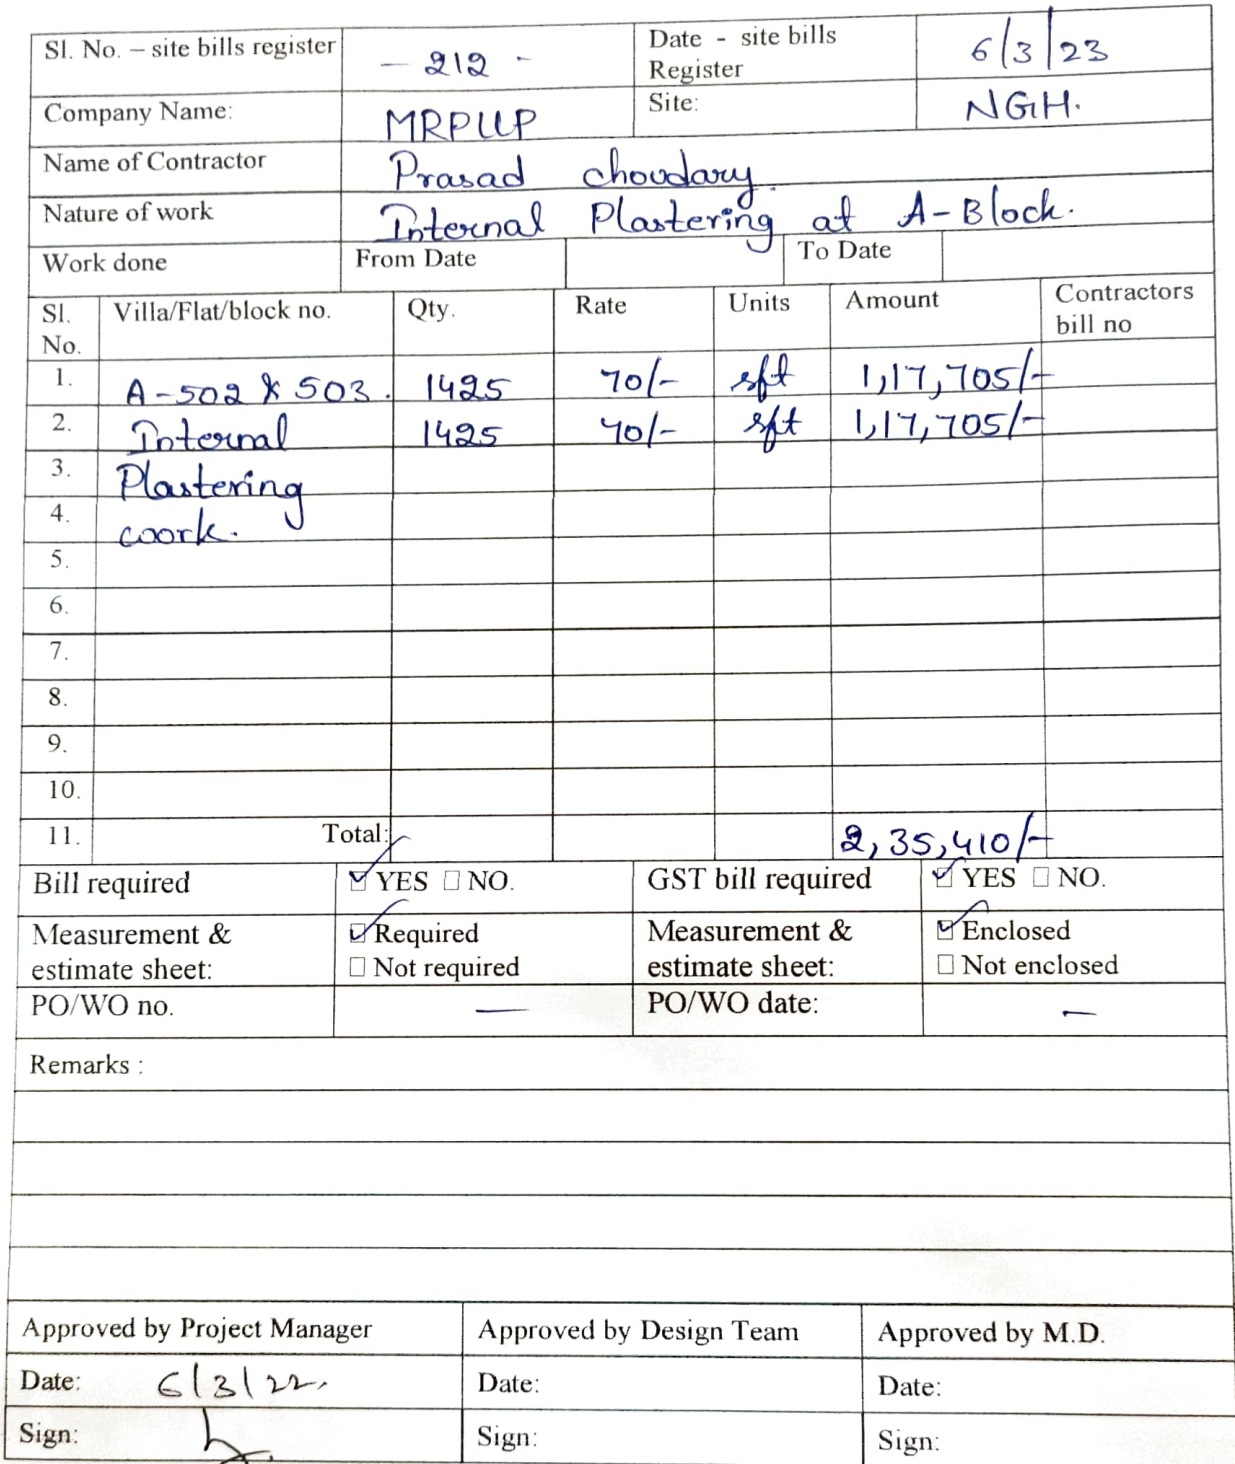 Sl. No. – site bills register - 212 - Date - site bills Register 6/3/23
Company Name: MRPLLP Site: NGH.
Name of Contractor Prasad choudary.
Nature of work Internal Plastering at A-Block.
Work done From Date To Date
Sl. No. Villa/Flat/block no. Qty. Rate Units Amount Contractors bill no
1. A-502 & 503. 1425 70/- sft 1,17,705/-
2. Internal 1425 70/- sft 1,17,705/-
3. Plastering
4. work.
5.
6.
7.
8.
9.
10.
11. Total: 2,35,410/-
Bill required ☑ YES ☐ NO. GST bill required ☑ YES ☐ NO.
Measurement & ☑ Required Measurement & ☑ Enclosed
estimate sheet: ☐ Not required estimate sheet: ☐ Not enclosed
PO/WO no. — PO/WO date: —
Remarks :
Approved by Project Manager Approved by Design Team Approved by M.D.
Date: 6/3/22. Date: Date:
Sign: Sign: Sign: